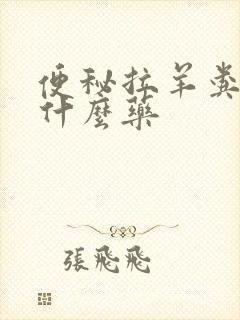 便秘拉羊粪
什麼藥
張飛飛